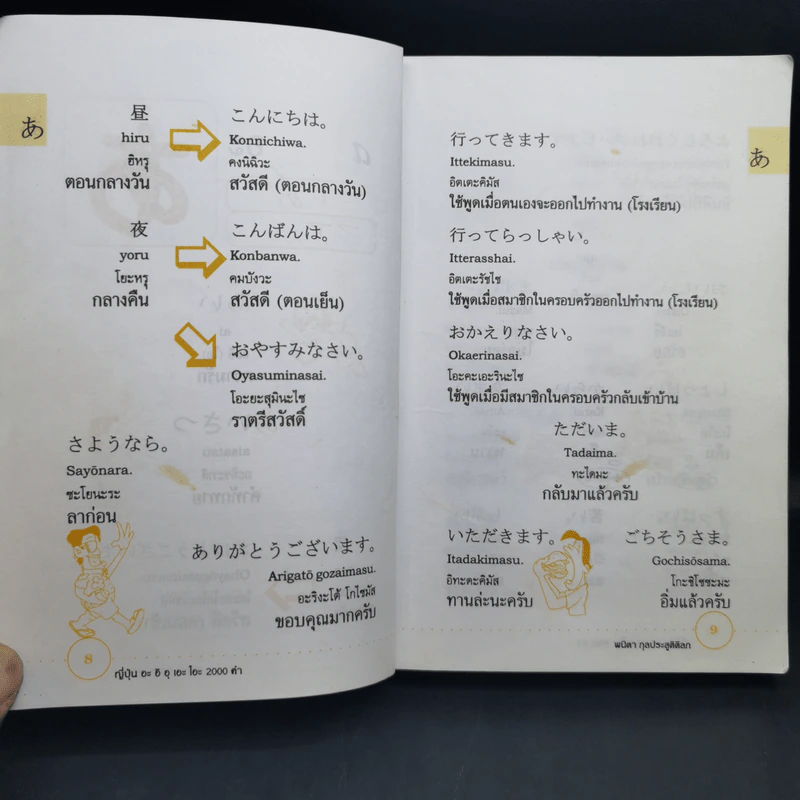 あ
昼
hiru
ฮิหรุ
ตอนกลางวัน
こんにちは。
Konnichiwa.
คงนิฉิวะ
สวัสดี (ตอนกลางวัน)
夜
yoru
โยะหรุ
กลางคืน
こんばんは。
Konbanwa.
คมบังวะ
สวัสดี (ตอนเย็น)
おやすみなさい。
Oyasuminasai.
โอะยะสุมินะไซ
ราตรีสวัสดิ์
さようなら。
Sayōnara.
ซะโยนะระ
ลาก่อน
ありがとうございます。
Arigatō gozaimasu.
อะริงะโต้ โกไซมัส
ขอบคุณมากครับ
8
ญี่ปุ่น อะ อิ อุ เอะ โอะ 2000 คำ
あ
行ってきます。
Ittekimasu.
อิตเตะคิมัส
ใช้พูดเมื่อตนเองจะออกไปทำงาน (โรงเรียน)
行ってらっしゃい。
Itterasshai.
อิตเตะรัชไช
ใช้พูดเมื่อสมาชิกในครอบครัวออกไปทำงาน (โรงเรียน)
おかえりなさい。
Okaerinasai.
โอะคะเอะรินะไซ
ใช้พูดเมื่อมีสมาชิกในครอบครัวกลับเข้าบ้าน
ただいま。
Tadaima.
ทะไดมะ
กลับมาแล้วครับ
いただきます。
Itadakimasu.
อิทะดะคิมัส
ทานล่ะนะครับ
ごちそうさま。
Gochisōsama.
โกะชิโซซะมะ
อิ่มแล้วครับ
9
พนิดา กุลประสูติดิลก